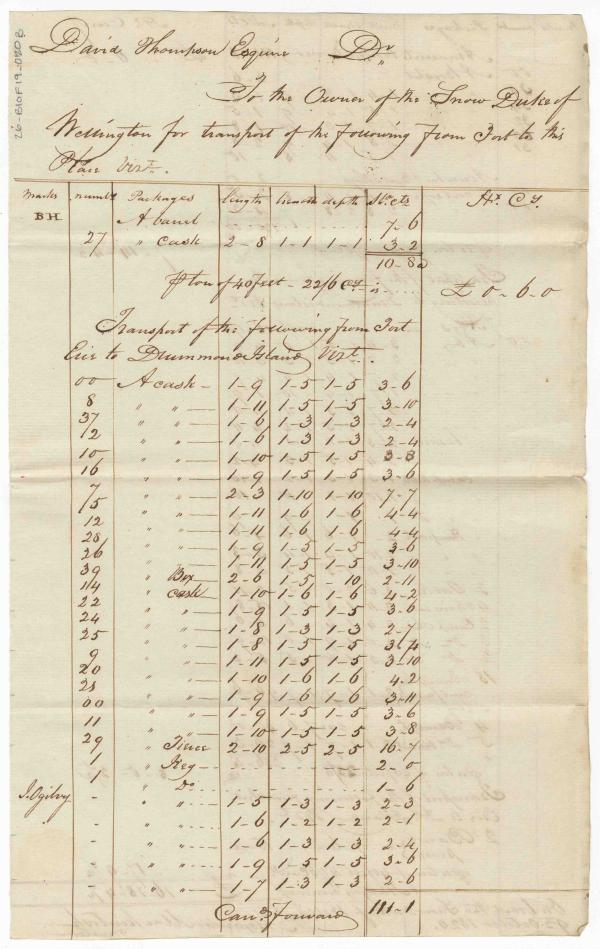 26-B10F19-020B
Dr. David Thompson Esquire Dr.
To the Owner of the Snow Duke of
Wellington for transport of the following from Fort to this
Place Vizt.
Marks numbr Packages length breadth depth Sts. cts Hx. Cy.
BH. A barrel 7-6
27 " cask 2-8 1-1 1-1 3-2
10-8
P ton of 40 feet - 22/6 Cy. is £0-6-0
Transport of the following from Fort
Erie to Drummond Island Vizt.
00 A cask 1-9 1-5 1-5 3-6
8 " " 1-11 1-5 1-5 3-10
37 " " 1-6 1-3 1-3 2-4
12 " " 1-6 1-3 1-3 2-4
10 " " 1-10 1-5 1-5 3-8
16 " " 1-9 1-5 1-5 3-6
7 " " 2-3 1-10 1-10 7-7
15 " " 1-11 1-6 1-6 4-4
12 " " 1-11 1-6 1-6 4-4
28 " " 1-9 1-5 1-5 3-6
26 " " 1-11 1-5 1-5 3-10
39 " Box 2-6 1-5 -10 2-11
14 " cask 1-10 1-6 1-6 4-2
22 " " 1-9 1-5 1-5 3-6
24 " " 1-8 1-3 1-3 2-7
25 " " 1-8 1-5 1-5 3-4
9 " " 1-11 1-5 1-5 3-10
20 " " 1-10 1-6 1-6 4-2
28 " " 1-9 1-6 1-6 3-11
00 " " 1-9 1-5 1-5 3-6
11 " " 1-10 1-5 1-5 3-8
29 " Tierce 2-10 2-5 2-5 16-7
1 " Keg 2-0
1 " Do. 1-6
J. Ogilvy - " " 1-5 1-3 1-3 2-3
- " " 1-6 1-2 1-2 2-1
- " " 1-6 1-3 1-3 2-4
- " " 1-9 1-5 1-5 3-6
- " " 1-7 1-3 1-3 2-6
Carrd. Forward 111-1